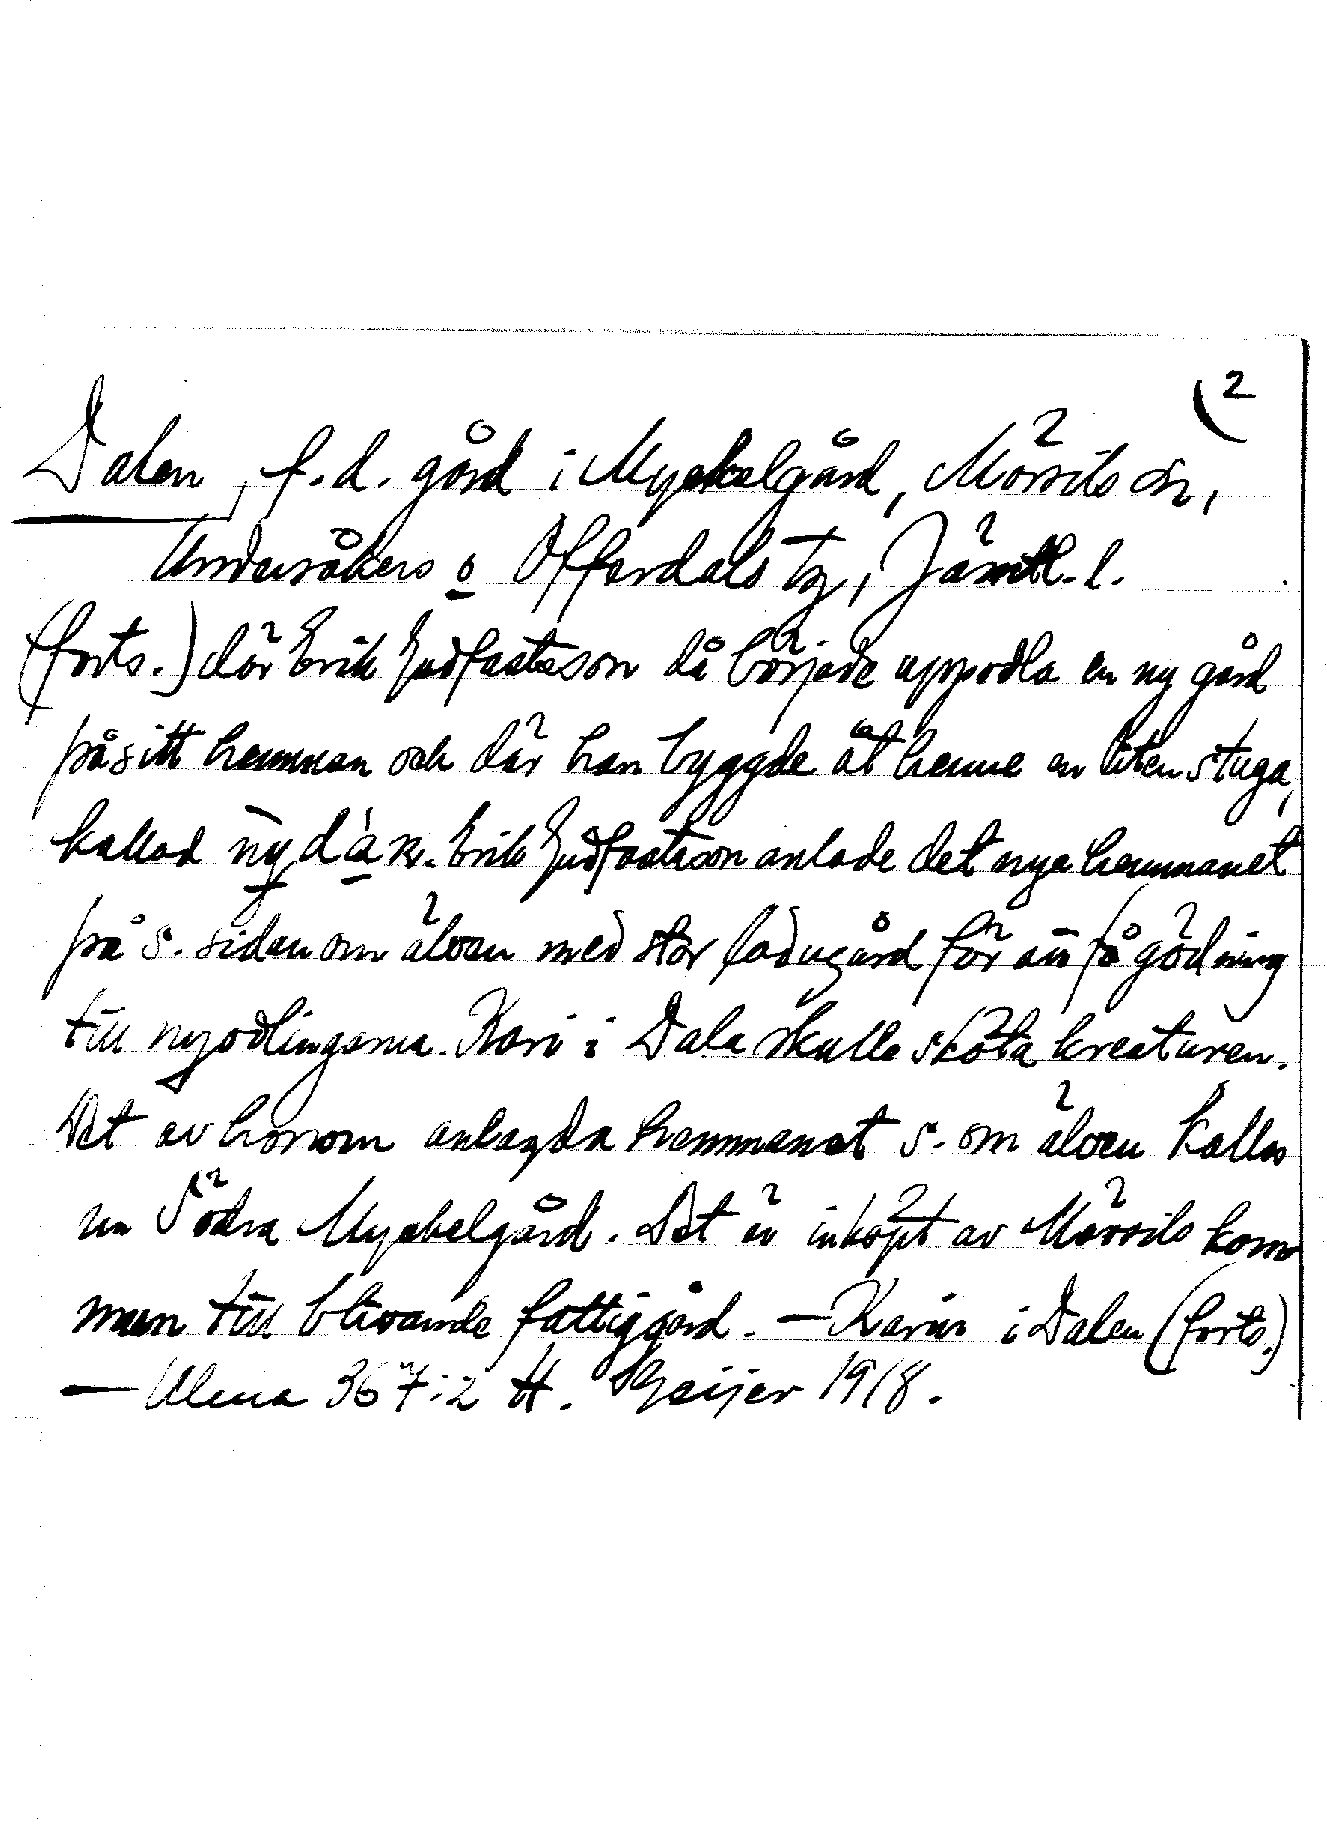 (2
Dalen, f.d. gård i Myckelgård, Mörsils sn,
Undersåkers o Offerdals tg, Jämtl. l.
(forts.) där Erik Gudfastsson då började uppodla en ny gård
på sitt hemman och där han byggde åt henne en liten stuga,
kallad Erik Gudfastsson anlade det nya hemmanet
på s. sidan om älven med stor ladugård för att få gödning
till nyodlingarna. Kari i Dala skulle sköta kreaturen.
Det av honom anlagda hemmanet s. om älven kallas
nu Södra Myckelgård. Det är inköpt av Mörsils kom
mun till blivande fattiggård. — Karin i Dalen (forts.)
— Ulma 367:2 H. Geijer 1918.